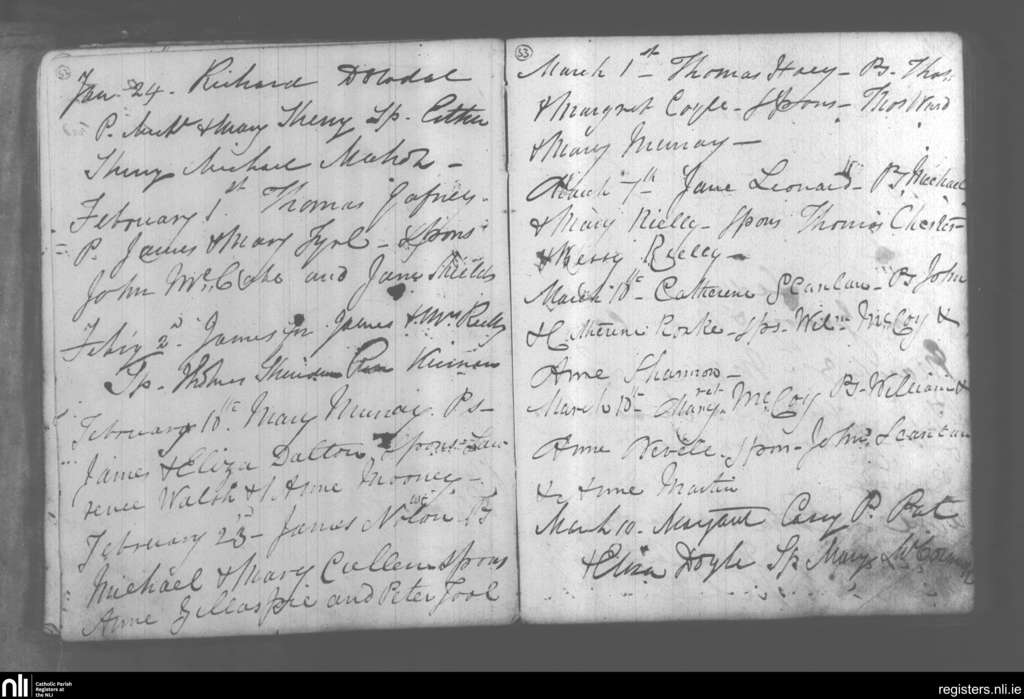 53
Jan. 24. Richard
P. Mich. & Mary Sherry Sp. Esther
Sherry Michael
February 1st Thomas Gafney.
P. James & Mary Tyrl - Spons
John McCabe and Jane Shields
Feb'y 2d. James Jn. James & Mry Reilly
Sp. Thomas Sheridan Ann Kiernan
February 18th Mary Murray. Ps-
James & Eliza Dalton Spons- Law
rence Walsh & Anne Mooney-
February 23d- James Nolan Ps
Michael & Mary Cullen Spons
Anne Gillaspie and Peter Tool
53
March 1st- Thomas Hoey- Ps. Thos.
& Margret Coyle- Spons- Thos Ward
& Mary Murray-
March 7th- Jane Leonard- Ps Michael
& Mary Rielly- Spons Thomas Chester
& Bessy Rielly-
March 10th- Catherine Scanlan- Ps John
& Catherine Rorke- Sps- Wilm McCoy &
Anne Shannon-
March 10th- Margret McCoy Ps- William &
Anne Nevele. Spon- John Scanlan
& Anne Martin
March 10. Margaret Casey P. Pat
& Eliza Doyle Sp Mary
nli Catholic Parish
Registers at
the NLI
registers.nli.ie